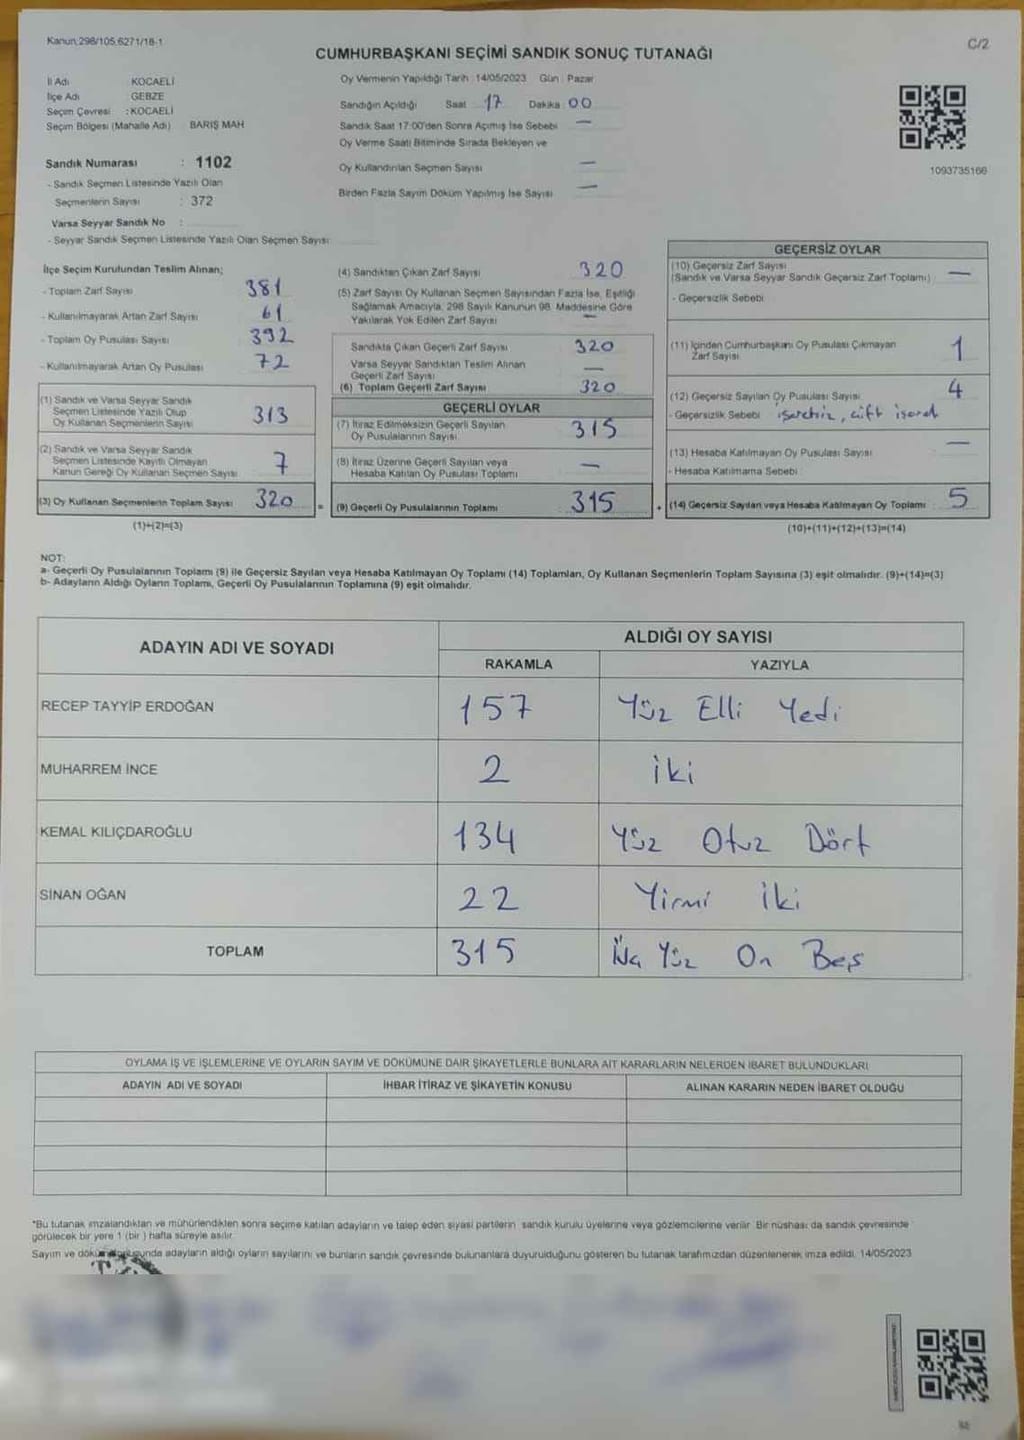 Kanun;298/105;6271/18-1
C/2
CUMHURBAŞKANI SEÇİMİ SANDIK SONUÇ TUTANAĞI
İl Adı KOCAELİ
İlçe Adı GEBZE
Seçim Çevresi : KOCAELİ
Seçim Bölgesi (Mahalle Adı) BARIŞ MAH
Sandık Numarası : 1102
- Sandık Seçmen Listesinde Yazılı Olan
Seçmenlerin Sayısı : 372
Varsa Seyyar Sandık No :
- Seyyar Sandık Seçmen Listesinde Yazılı Olan Seçmen Sayısı
Oy Vermenin Yapıldığı Tarih : 14/05/2023 Gün : Pazar
Sandığın Açıldığı Saat 17 Dakika 00
Sandık Saat 17:00'den Sonra Açılmış İse Sebebi —
Oy Verme Saati Bitiminde Sırada Bekleyen ve
Oy Kullandırılan Seçmen Sayısı —
Birden Fazla Sayım Döküm Yapılmış İse Sayısı —
1093735166
İlçe Seçim Kurulundan Teslim Alınan;
- Toplam Zarf Sayısı 381
- Kullanılmayarak Artan Zarf Sayısı 61
- Toplam Oy Pusulası Sayısı 392
- Kullanılmayarak Artan Oy Pusulası 72
(1) Sandık ve Varsa Seyyar Sandık
Seçmen Listesinde Yazılı Olup
Oy Kullanan Seçmenlerin Sayısı 313
(2) Sandık ve Varsa Seyyar Sandık
Seçmen Listesinde Kayıtlı Olmayan
Kanun Gereği Oy Kullanan Seçmen Sayısı 7
(3) Oy Kullanan Seçmenlerin Toplam Sayısı 320 =
(1)+(2)=(3)
(4) Sandıktan Çıkan Zarf Sayısı 320
(5) Zarf Sayısı Oy Kullanan Seçmen Sayısından Fazla İse, Eşitliği
Sağlamak Amacıyla, 298 Sayılı Kanunun 98. Maddesine Göre
Yakılarak Yok Edilen Zarf Sayısı —
Sandıkta Çıkan Geçerli Zarf Sayısı 320
Varsa Seyyar Sandıktan Teslim Alınan
Geçerli Zarf Sayısı —
(6) Toplam Geçerli Zarf Sayısı 320
GEÇERLİ OYLAR
(7) İtiraz Edilmeksizin Geçerli Sayılan
Oy Pusulalarının Sayısı 315
(8) İtiraz Üzerine Geçerli Sayılan veya
Hesaba Katılan Oy Pusulası Toplamı —
(9) Geçerli Oy Pusulalarının Toplamı 315 +
GEÇERSİZ OYLAR
(10) Geçersiz Zarf Sayısı
(Sandık ve Varsa Seyyar Sandık Geçersiz Zarf Toplamı) —
- Geçersizlik Sebebi
(11) İçinden Cumhurbaşkanı Oy Pusulası Çıkmayan
Zarf Sayısı 1
(12) Geçersiz Sayılan Oy Pusulası Sayısı 4
- Geçersizlik Sebebi işaretsiz, çift işaret
(13) Hesaba Katılmayan Oy Pusulası Sayısı —
- Hesaba Katılmama Sebebi
(14) Geçersiz Sayılan veya Hesaba Katılmayan Oy Toplamı : 5
(10)+(11)+(12)+(13)=(14)
NOT:
a- Geçerli Oy Pusulalarının Toplamı (9) ile Geçersiz Sayılan veya Hesaba Katılmayan Oy Toplamı (14) Toplamları, Oy Kullanan Seçmenlerin Toplam Sayısına (3) eşit olmalıdır. (9)+(14)=(3)
b- Adayların Aldığı Oyların Toplamı, Geçerli Oy Pusulalarının Toplamına (9) eşit olmalıdır.
ADAYIN ADI VE SOYADI
ALDIĞI OY SAYISI
RAKAMLA YAZIYLA
RECEP TAYYİP ERDOĞAN 157 Yüz Elli Yedi
MUHARREM İNCE 2 İki
KEMAL KILIÇDAROĞLU 134 Yüz Otuz Dört
SİNAN OĞAN 22 Yirmi İki
TOPLAM 315 Yüz On Beş
OYLAMA İŞ VE İŞLEMLERİNE VE OYLARIN SAYIM VE DÖKÜMÜNE DAİR ŞİKAYETLERLE BUNLARA AİT KARARLARIN NELERDEN İBARET BULUNDUKLARI
ADAYIN ADI VE SOYADI İHBAR İTİRAZ VE ŞİKAYETİN KONUSU ALINAN KARARIN NEDEN İBARET OLDUĞU
*Bu tutanak imzalandıktan ve mühürlendikten sonra seçime katılan adayların ve talep eden siyasi partilerin sandık kurulu üyelerine veya gözlemcilerine verilir. Bir nüshası da sandık çevresinde
görülecek bir yere 1 (bir) hafta süreyle asılır.
Sayım ve döküm sonucunda adayların aldığı oyların sayılarını ve bunların sandık çevresinde bulunanlara duyurulduğunu gösteren bu tutanak tarafımızdan düzenlenerek imza edildi. 14/05/2023